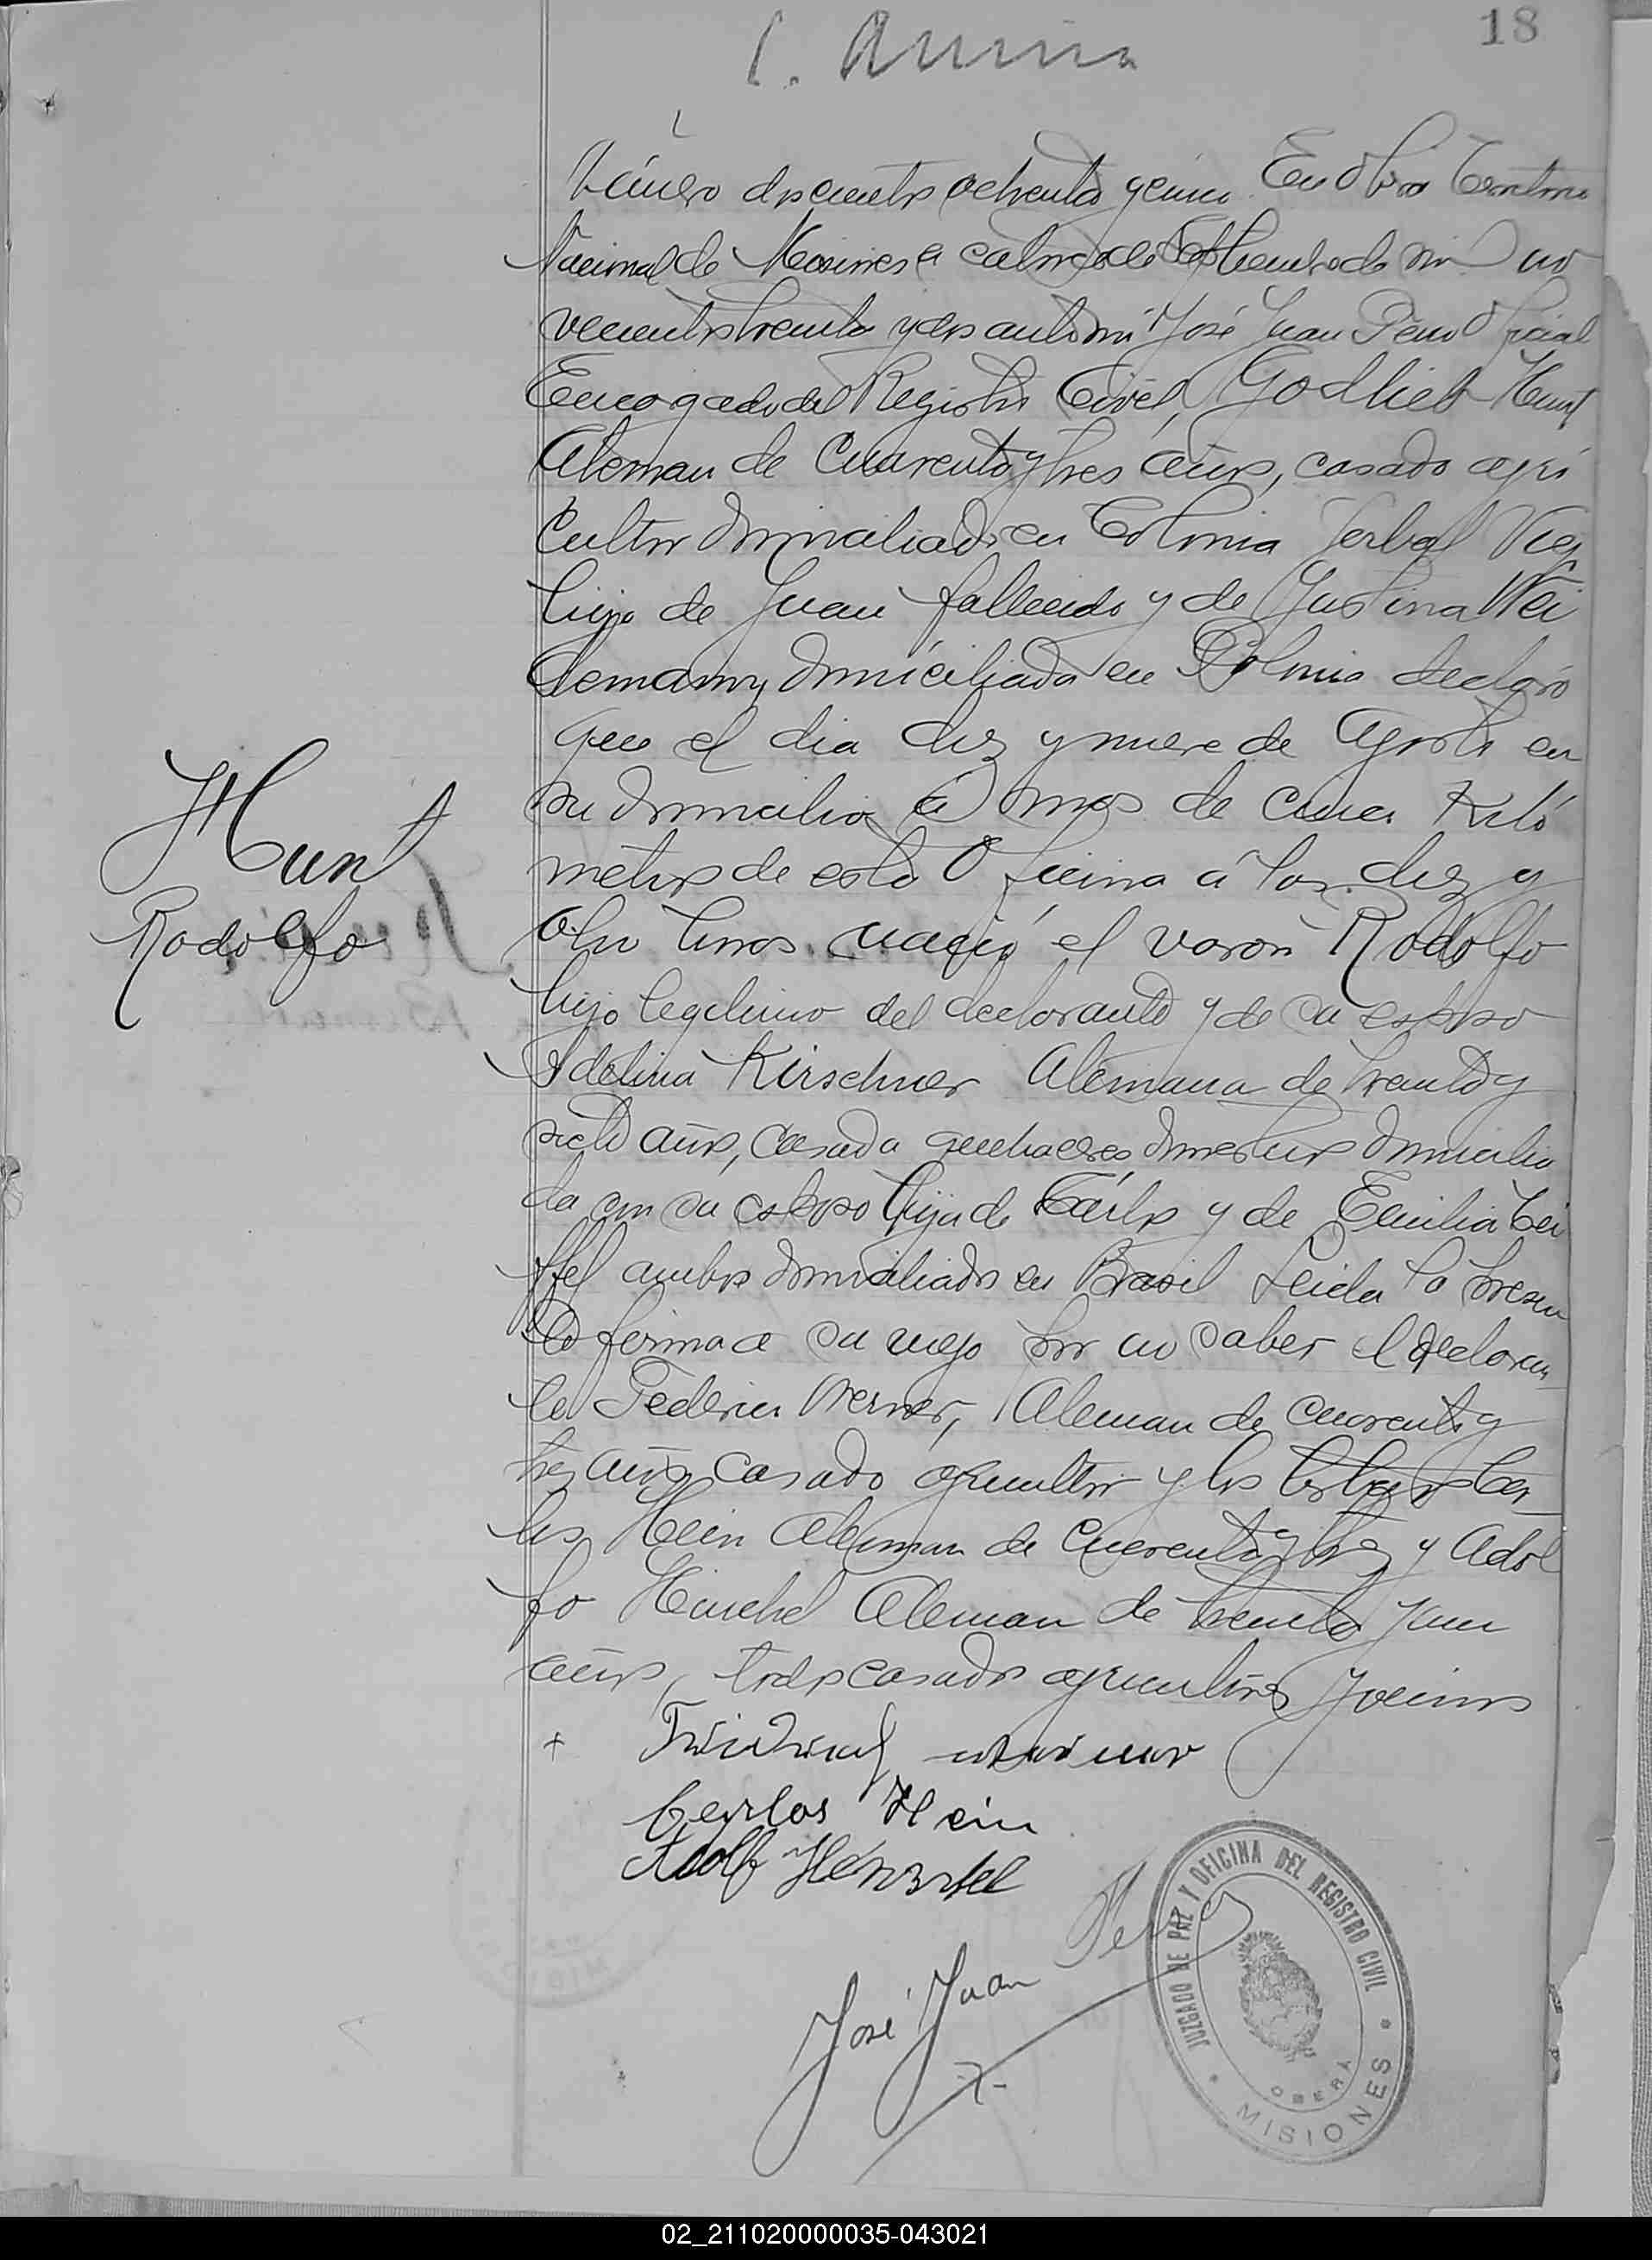 18
Número doscientos ochenta y cinco En Oberá Territorio
Nacional de Misiones a catorce de Septiembre de mil no
vecientos treinta y dos ante mi José Juan Oficial
Encargado del Registro Civil, Godlieb Hunt
Aleman de Cuarenta y tres años, casado agri
cultor domiciliado en Colonia Yerbal Viejo
hijo de Juan fallecido y de Justina Wei
demann, domiciliada en Polonia declaró
que el dia diez y nueve de Agosto en
su domicilio á mas de cinco Kiló
metros de esta Oficina á las diez y
ocho horas nació el varon Rodolfo
hijo legitimo del declarante y de su esposa
Adelina Kirschner Alemana de treinta y
siete años, casada quehaceres domesticos domicilia
da con su esposo hija de Carlos y de Emilia
ambos domiciliados en Brasil Leida la presen
te firma a su ruego por no saber el declaran
te Federico Werner, Aleman de cuarenta y
tres años casado agricultor y los testigos Car
los Hein Aleman de Cuarenta y tres y Adol
fo Aleman de treinta y un
años, todos casados agricultores y vecinos
Hunt
Rodolfo
+
Carlos Hein
Adolf
José Juan
JUZGADO DE PAZ Y OFICINA DEL REGISTRO CIVIL
OBERÁ
* MISIONES *
02_211020000035-043021